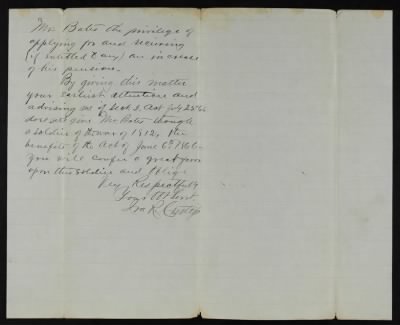 Mr. Bates the privilege of
applying for and receiving
(if entitled to any) an increase
of his pension.
By giving this matter
your earliest attention and
advising me of Sect. 2. Act
does not give Mr Bates though
a soldier of the war of 1812, the
benefits of the Act of June 6th 1866
you will confer a great favor
upon this soldier and oblige
Very Respectfully
Your Obt Servt.
Ira R.